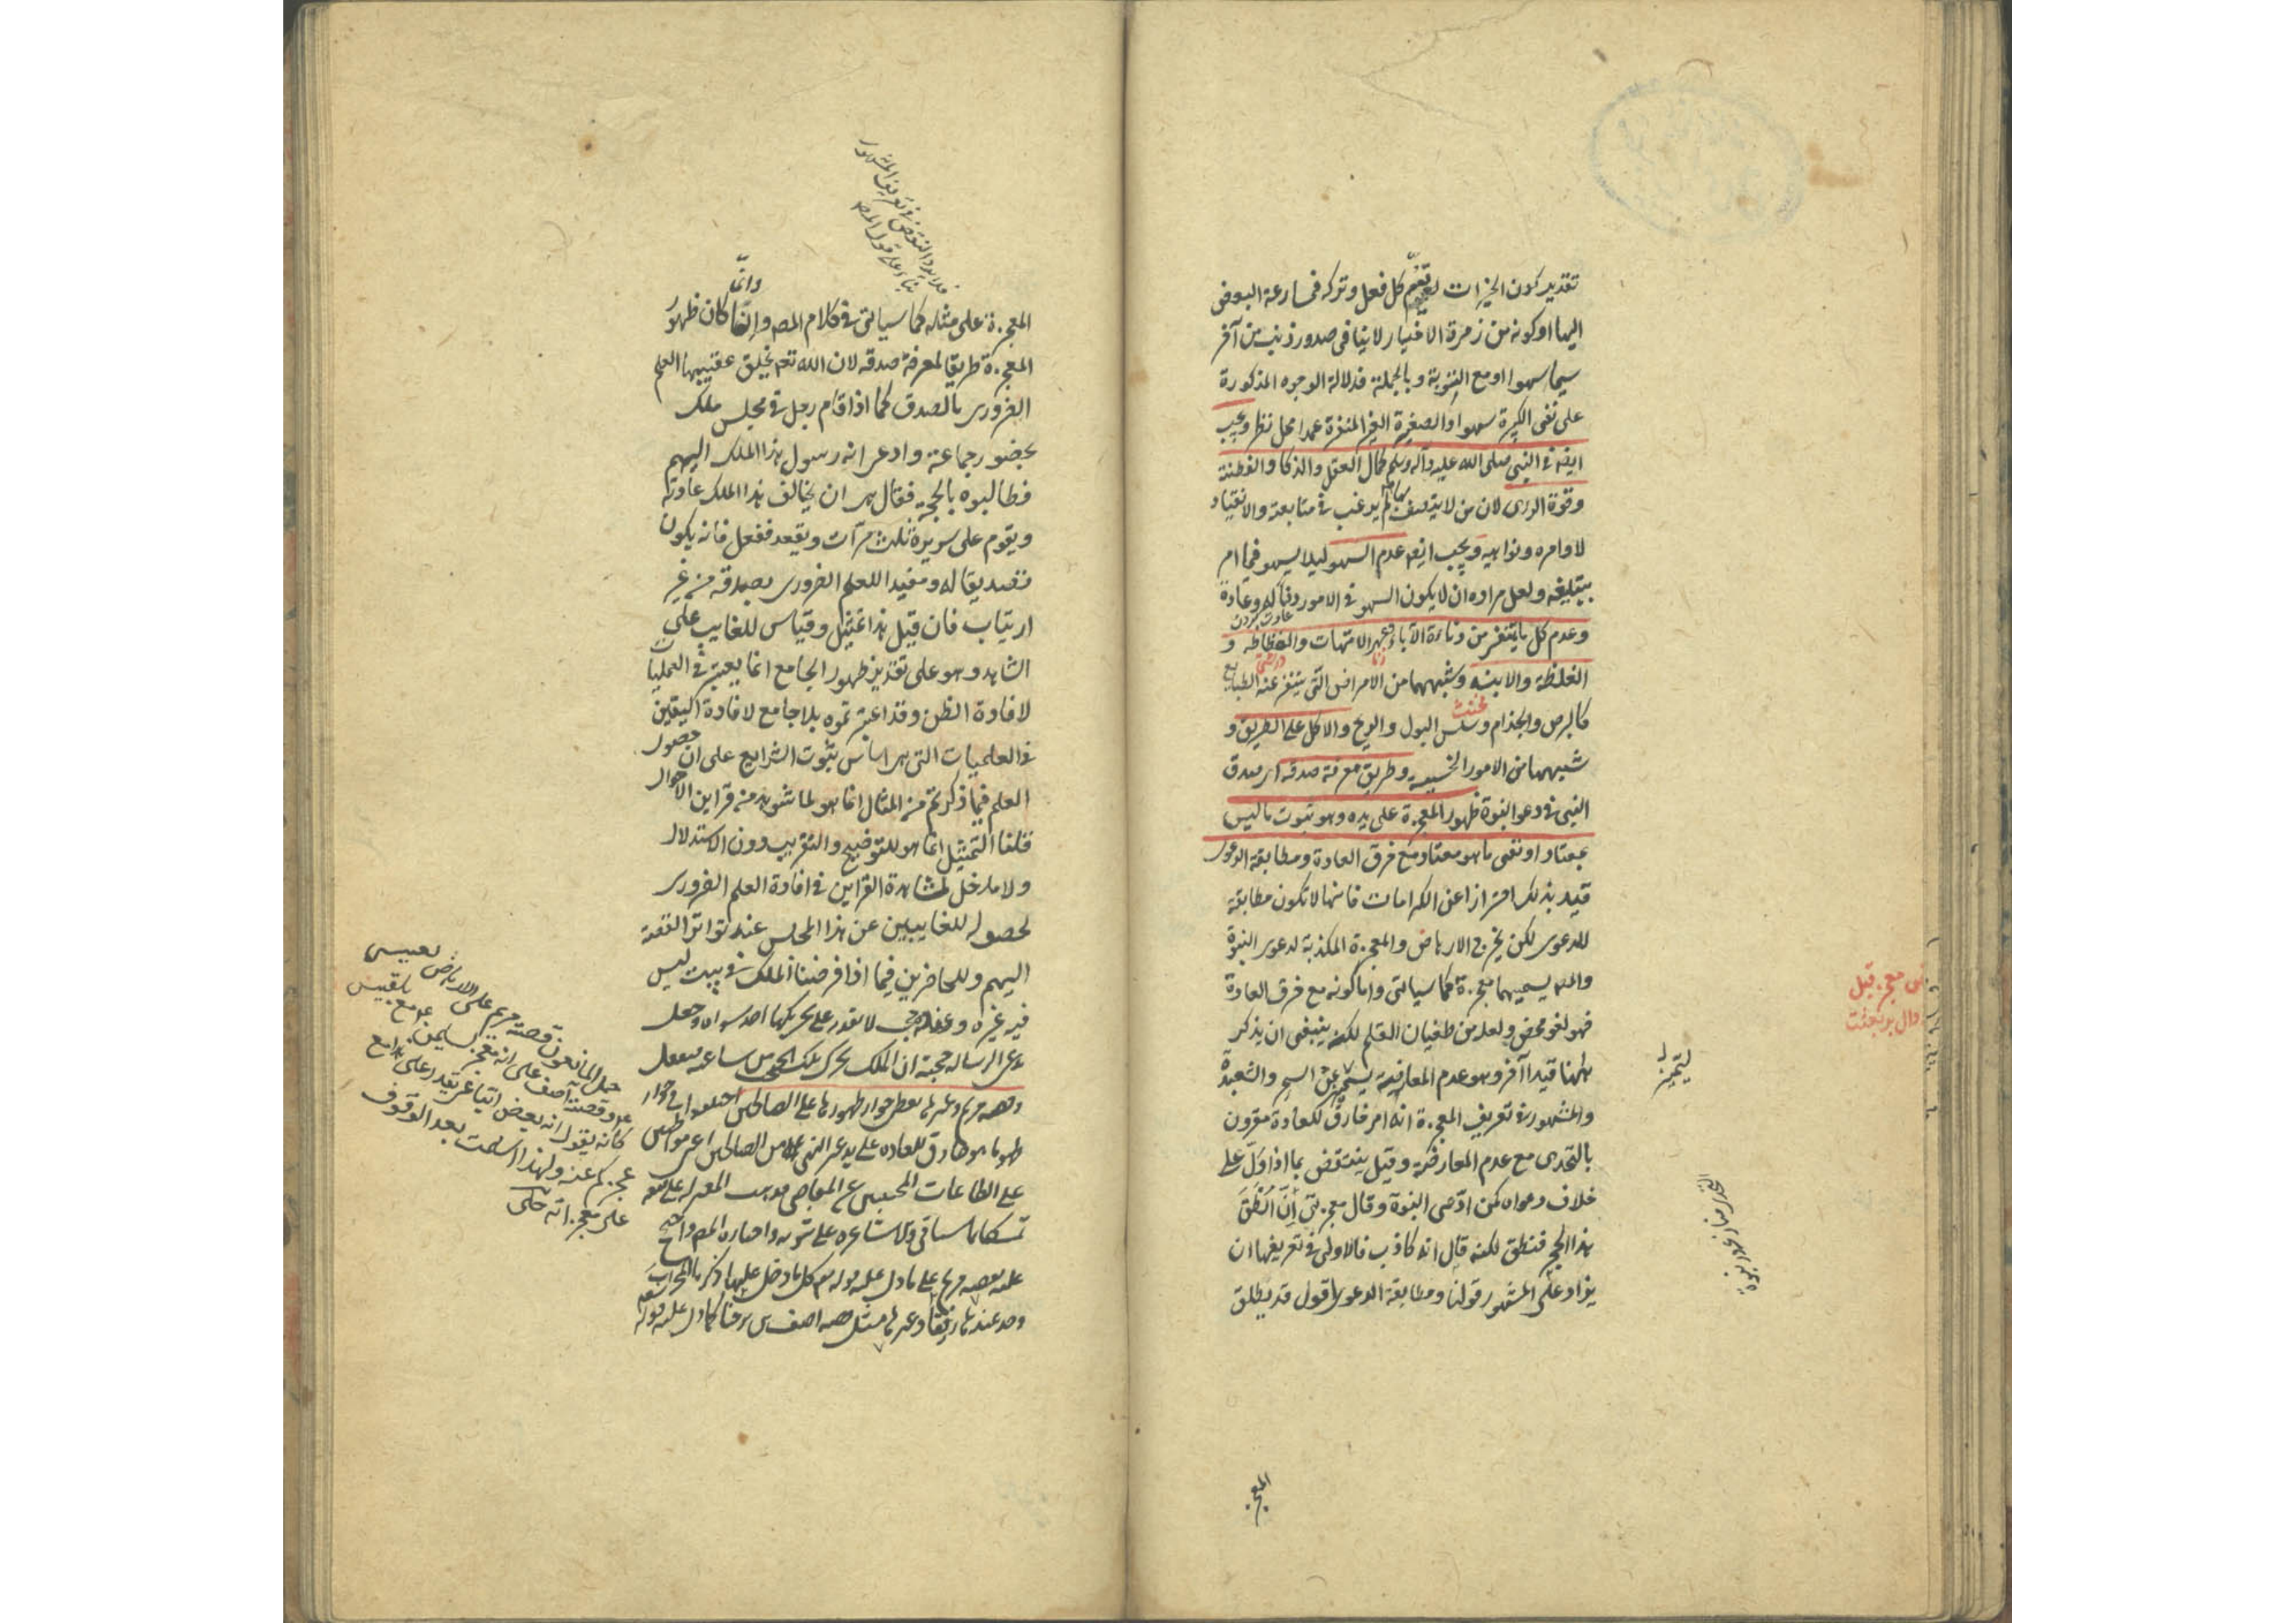 تقدير كون الخيرات لعموم كل فعل وتركه فمسارعة البعض
اليها او كونه من زمرة الاخيار لا ينافى صدور ذنب من آخر
سيما سهوا او مع التوبة وبالجملة فدلالة الوجوه المذكورة
على نفى الكبيرة سهوا والصغيرة الغير المنفرة عمدا محل نظر ويجب
ايضا فى النبى صلى الله عليه وآله وسلم كمال العقل والذكا والفطنة
وقوة الراى لان من لا يتصف بها لم يرغب فى متابعته والانقياد
لاوامره ونواهيه ويجب ايضا عدم السهو ليلا يسهو فيما امر
بتبليغه ولعل مراده ان لا يكون السهو فى الامور وعادة
وعدم كل ما يتنفر من دناءة الآباء وعهر الامهات والفظاظة و
الغلظة والابنه وشبهها من الامراض التى يتنفر عنه الطبايع
كالبرص والجذام وسلس البول والريح والاكل على الطريق و
شبهها من الامور الخسيسه وطريق معرفة صدقه اى صدق
النبى فى دعو النبوة ظهور المعجزة على يده وهو ثبوت ما ليس
بمعتاد او نفى ما هو معتاد مع خرق العادة ومطابقة الدعوى
قيد بذلك احترازا عن الكرامات فانها لا تكون مطابقة
للدعوى لكن يخرج الارهاص والمعجزة المكذبة لدعوى النبوة
والمص يسميها معجزة كما سياتى واما كونه مع خرق العادة
فهو لغو محض ولعله من طغيان القلم لكنه ينبغى ان يذكر
ههنا قيدا آخر وهو عدم المعارضة ليتميز عن السحر والشعبدة
والمشهور فى تعريف المعجزة انه امر خارق للعادة مقرون
بالتحدى مع عدم المعارضة وقيل ينتقض بما اذا دل على
خلاف دعواه كمن ادعى النبوة وقال معجزتى ان انطق
هذا الحجر فنطق لكنه قال انه كاذب فالاولى فى تعريفها ان
يزاد على المشهور قولنا ومطابقة الدعوى اقول قد يطلق
المعجز
معجز قبل
دال بر بعثت
فلا يرد النقض فى تعريف المشهور
بناء على قول المص
وانما
المعجزة على مثله كما سياتى فى كلام المص وانما كان ظهور
المعجزة طريقا لمعرفة صدقه لان الله تعم يخلق عقيبها العلم
الضرورى بالصدق كما اذا قام رجل فى مجلس ملك
بحضور جماعة وادعى انه رسول هذا الملك اليهم
فطالبوه بالحجة فقال هى ان يخالف هذا الملك عادته
ويقوم على سريره ثلث مرات ويقعد ففعل فانه يكون
تصديقا له ومفيدا للعلم الضرورى بصدقه من غير
ارتياب فان قيل هذا تمثيل وقياس للغايب على
الشاهد وهو على تقدير ظهور الجامع انما يعتبر فى العمليات
لافادة الظن وقد اعتبرتموه بلا جامع لافادة اليقين
فى العلميات التى هى اساس ثبوت الشرايع على ان حصول
العلم فيما ذكرتم من المثال انما هو لما شوهد من قراين الاحوال
قلنا التمثيل انما هو للتوضيح والتقريب دون الاستدلال
ولا مدخل لمشاهدة القراين فى افادة العلم الضرورى
لحصوله للغايبين عن هذا المجلس عند تواتر القصة
اليهم وللحاضرين فيما اذا فرضنا الملك فى بيت ليس
فيه غيره لا يقدر على تحريكها احد سواه وجعل
مدعى الرسالة حجته ان الملك يحرك تلك الحجب من ساعته ففعل
وقصة مريم وغيرها يعطى جواز ظهورها على الصالحين اختلفوا فى جواز
ظهور ما هو خارق للعادة على يد غير النبى من الصالحين
على الطاعات المجتنبين عن المعاصى فذهب المعتزلة على منعه
تمسكا بما سياتى والاشاعرة على ثبوته واختاره المص واحتج
عليه بقصة مريم على ما دل عليه قوله تعم كلما دخل عليها زكريا المحراب
وجد عندها رزقا وغيرها مثل قصة اصف بن برخيا كما دل عليه قوله
حمل المانعون قصة مريم على الارهاص لعيسى
وقصة آصف على انه معجز لسليمن مع بلقيس
كانه يقول انه بعض اتباعى يقدر على هذا مع
عجزكم عنه ولهذا اسلمت بعد الوقوف
على معجزاته